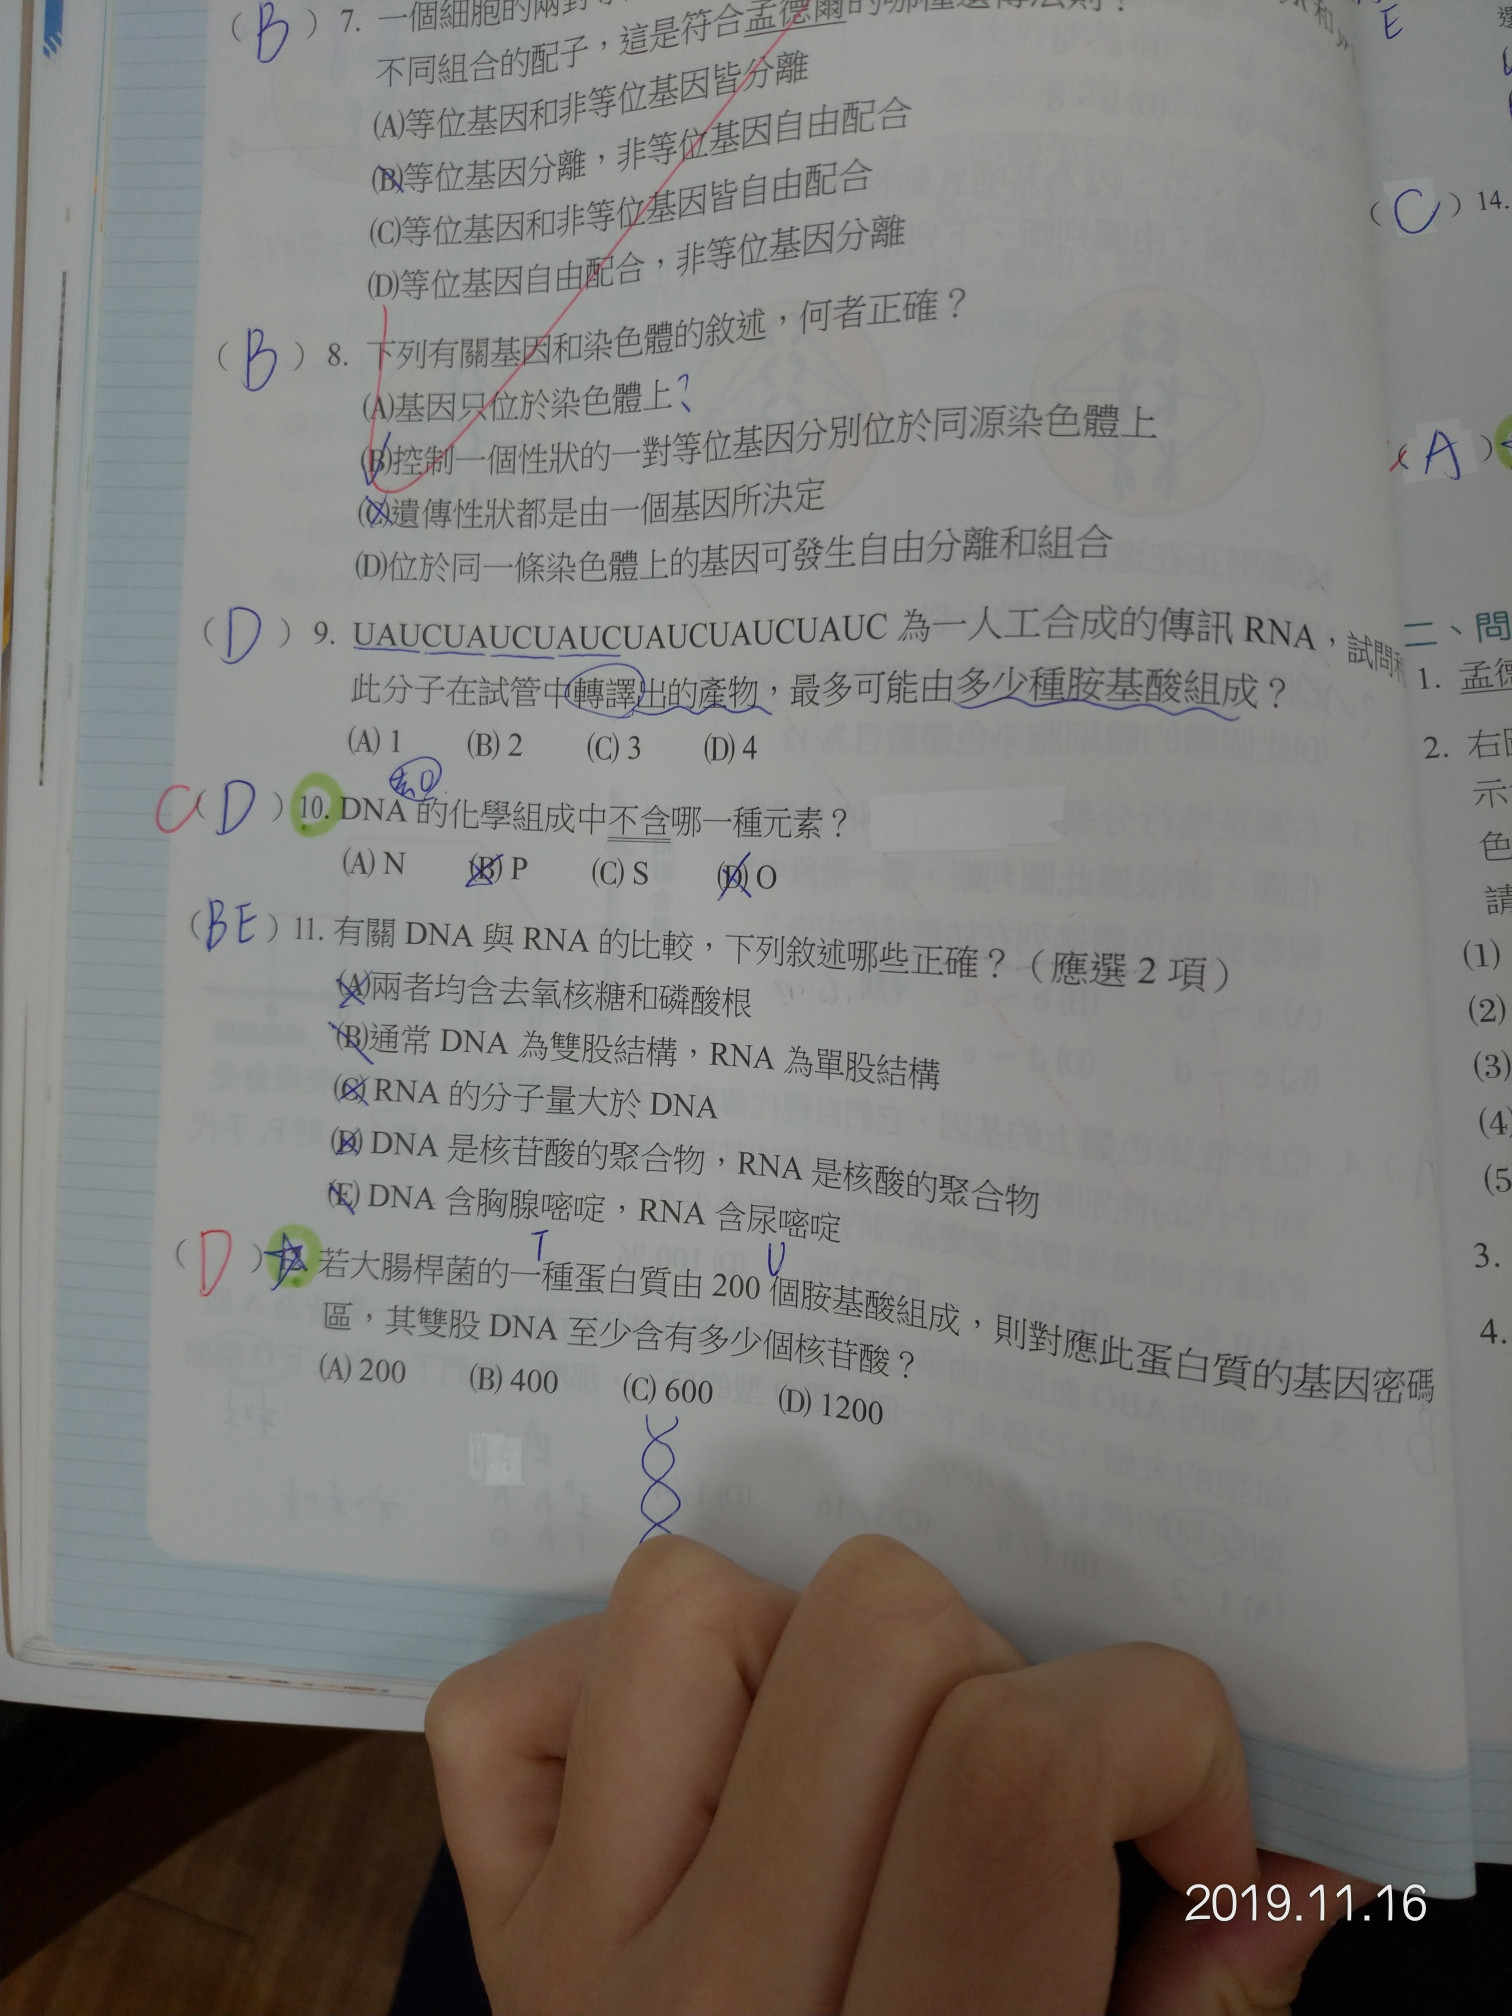 (B) 7. 一個細胞的兩對
不同組合的配子，這是符合孟德爾的哪種遺傳法則？
(A)等位基因和非等位基因皆分離
(B)等位基因分離，非等位基因自由配合
(C)等位基因和非等位基因皆自由配合
(D)等位基因自由配合，非等位基因分離
(B) 8. 下列有關基因和染色體的敘述，何者正確？
(A)基因只位於染色體上?
(B)控制一個性狀的一對等位基因分別位於同源染色體上
(C)遺傳性狀都是由一個基因所決定
(D)位於同一條染色體上的基因可發生自由分離和組合
(D) 9. UAUCUAUCUAUCUAUCUAUCUAUC 為一人工合成的傳訊 RNA，試問
此分子在試管中轉譯出的產物，最多可能由多少種胺基酸組成？
(A) 1 (B) 2 (C) 3 (D) 4
C(D) 10. DNA 的化學組成中不含哪一種元素？
(A) N (B) P (C) S (D) O
(BE) 11. 有關 DNA 與 RNA 的比較，下列敘述哪些正確？（應選 2 項）
(A)兩者均含去氧核糖和磷酸根
(B)通常 DNA 為雙股結構，RNA 為單股結構
(C) RNA 的分子量大於 DNA
(D) DNA 是核苷酸的聚合物，RNA 是核酸的聚合物
(E) DNA 含胸腺嘧啶，RNA 含尿嘧啶
T U
(D) 若大腸桿菌的一種蛋白質由 200 個胺基酸組成，則對應此蛋白質的基因密碼
區，其雙股 DNA 至少含有多少個核苷酸？
(A) 200 (B) 400 (C) 600 (D) 1200
E
(C) 14.
(A)
二、問
1. 孟德
2. 右
示
色
請
(1)
(2)
(3)
(4)
(5
3.
4.
2019.11.16